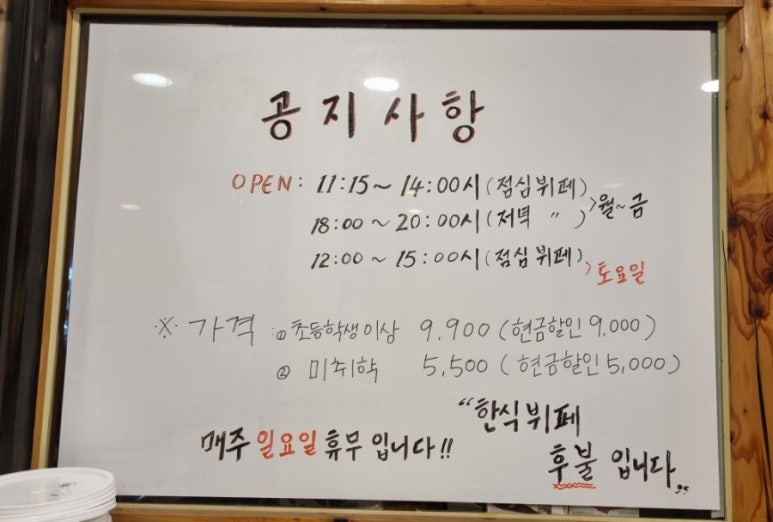 공지사항
OPEN: 11:15~14:00시(점심뷔페)
18:00~20:00시(저녁 〃 ) >월~금
12:00~15:00시(점심뷔페) >토요일
※ 가격 ① 초등학생이상 9.900 (현금할인 9,000)
② 미취학 5,500 (현금할인 5,000)
"한식뷔페
매주 일요일 휴무 입니다!!
후불 입니다"